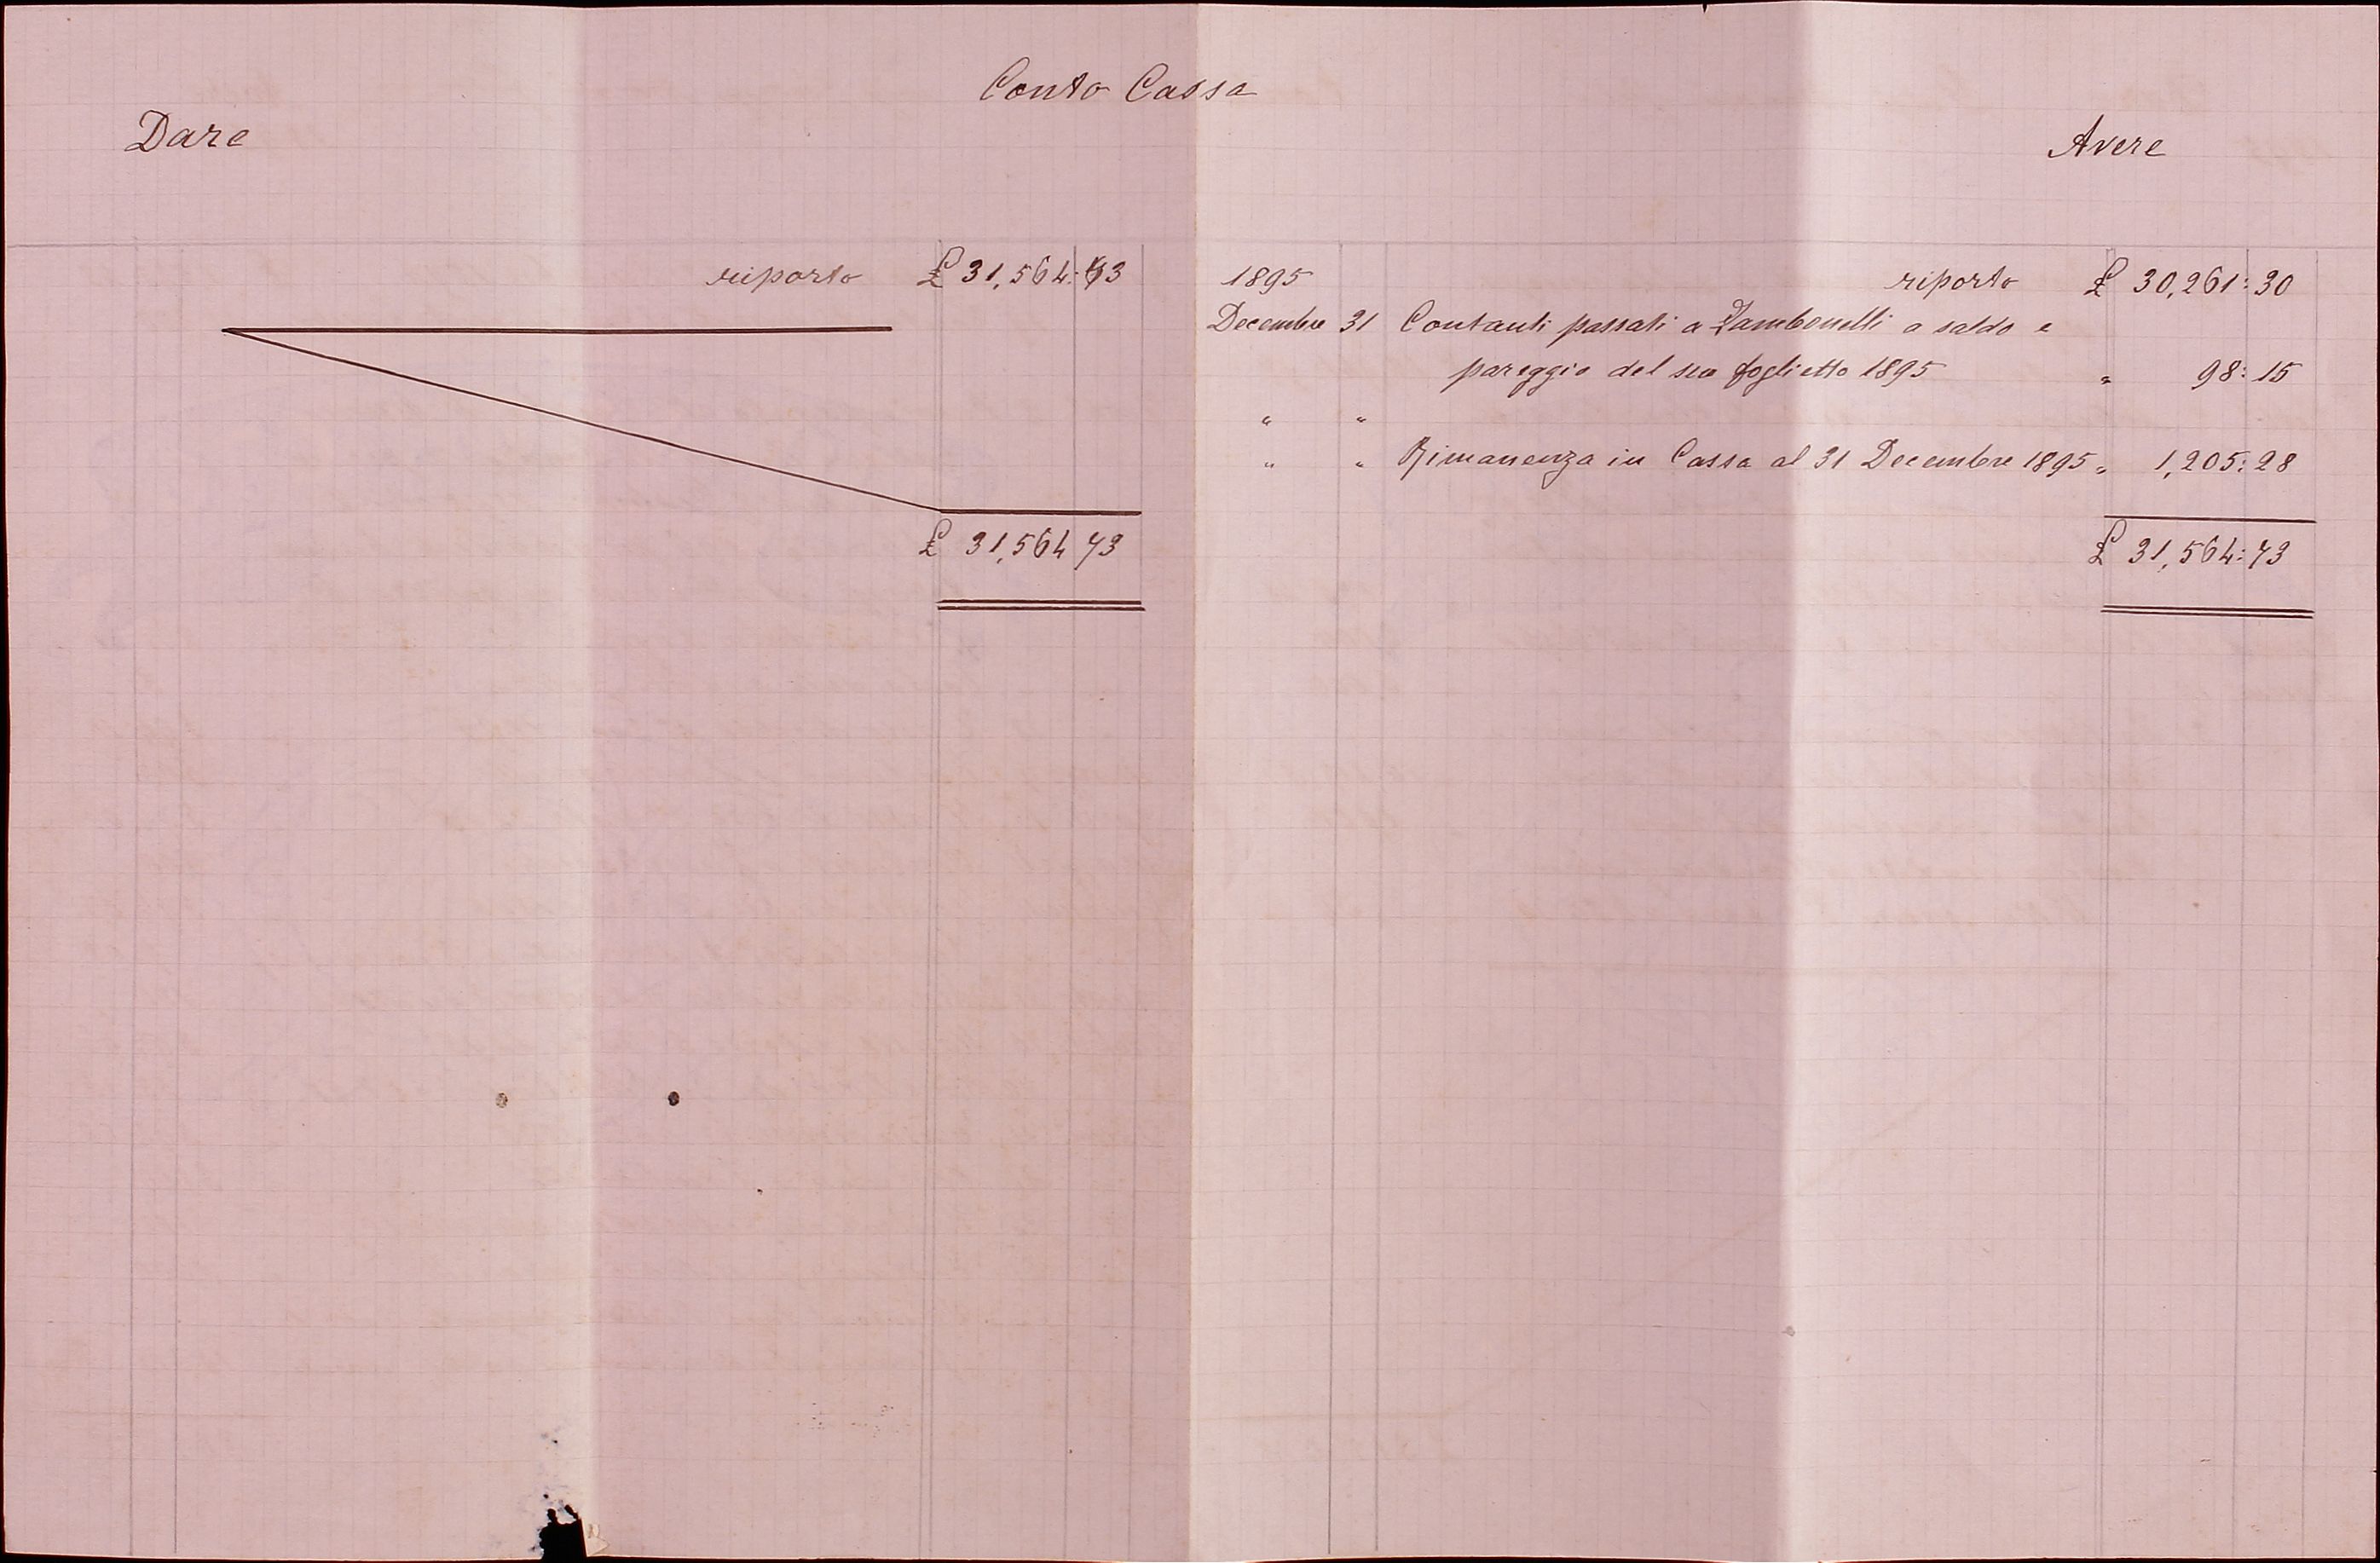 Conto Cassa
Dare
Avere
riporto £ 31,564:73
£ 31,564 73
1895 riporto £ 30,261:30
Decembre 31 Contanti passati a Zambonelli a saldo e
pareggio del suo foglietto 1895 " 98:15
" "
" " Rimanenza in Cassa al 31 Decembre 1895 " 1,205:28
£ 31,564:73